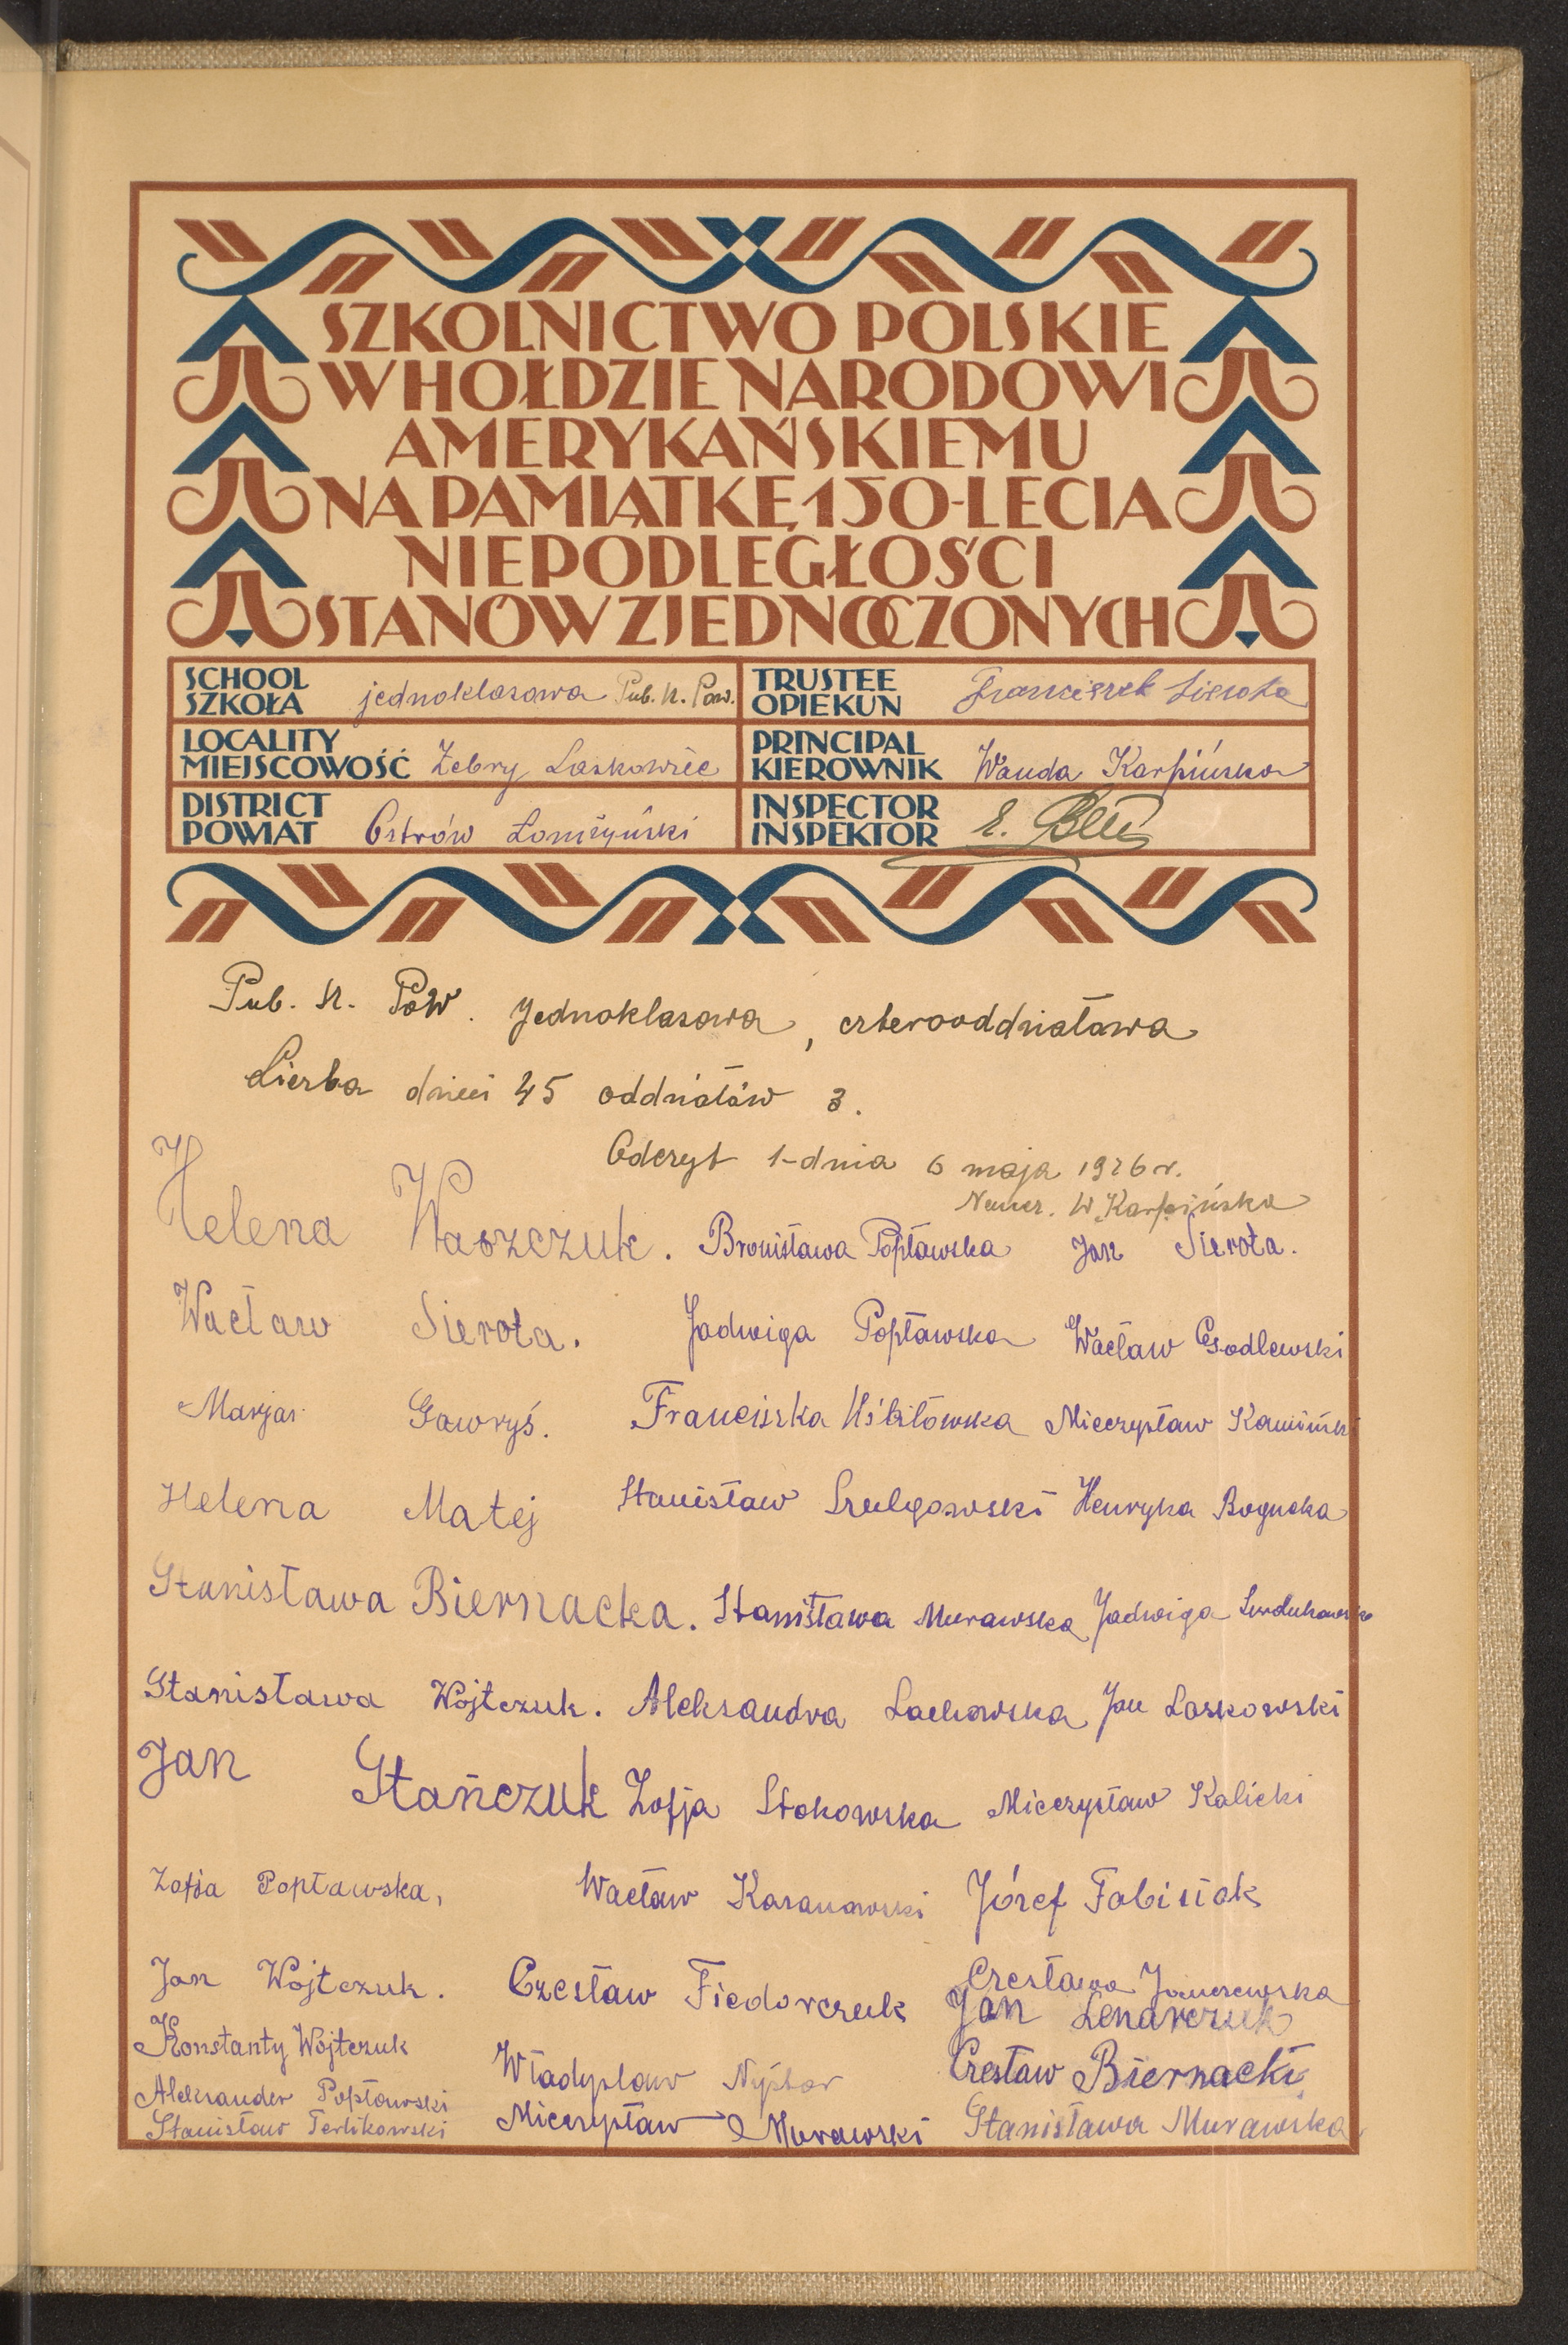 SZKOLNICTWO POLSKIE
W HOŁDZIE NARODOWI
AMERYKAŃSKIEMU
NA PAMIĄTKĘ 150-LECIA
NIEPODLEGŁOŚCI
STANÓW ZJEDNOCZONYCH
SCHOOL
SZKOŁA jednoklasowa Pub. sz. Pow.
TRUSTEE
OPIEKUN Franciszek Sierota
LOCALITY
MIEJSCOWOŚĆ Żebry Laskowiec
PRINCIPAL
KIEROWNIK Wanda Karpińska
DISTRICT
POWIAT Ostrów Łomżyński
INSPECTOR
INSPEKTOR
Pub. sz. Pow. Jednoklasowa, czterooddziałowa
Liczba dzieci 45 oddziałów 3.
Odczyt 1-dnia 6 maja 1926 r.
Naucz. W Karpińska
Helena Waszczuk. Bronisława Popławska Jan Sierota.
Wacław Sierota. Jadwiga Popławska Wacław Godlewski
Marjan Gawryś. Franciszka Mieczysław Kamiński
Helena Matej Stanisław Henryka Bogucka
Stanisława Biernacka. Stanisława Murawska Jadwiga
Stanisława Wojtczuk. Aleksandra Lachowska Jan Laskowski
Jan Stańczuk Zofja Stokowska Mieczysław Kalicki
Zofja Popławska, Wacław Kasanowski Józef Fabisiak
Jan Wojtczuk. Czesław Fiedorczuk Czesława Janczewska
Jan Lenarczuk
Konstanty Wojtczuk Władysław Czesław Biernacki
Aleksander Popławski
Stanisław Terlikowski Mieczysław Murawski Stanisława Murawska